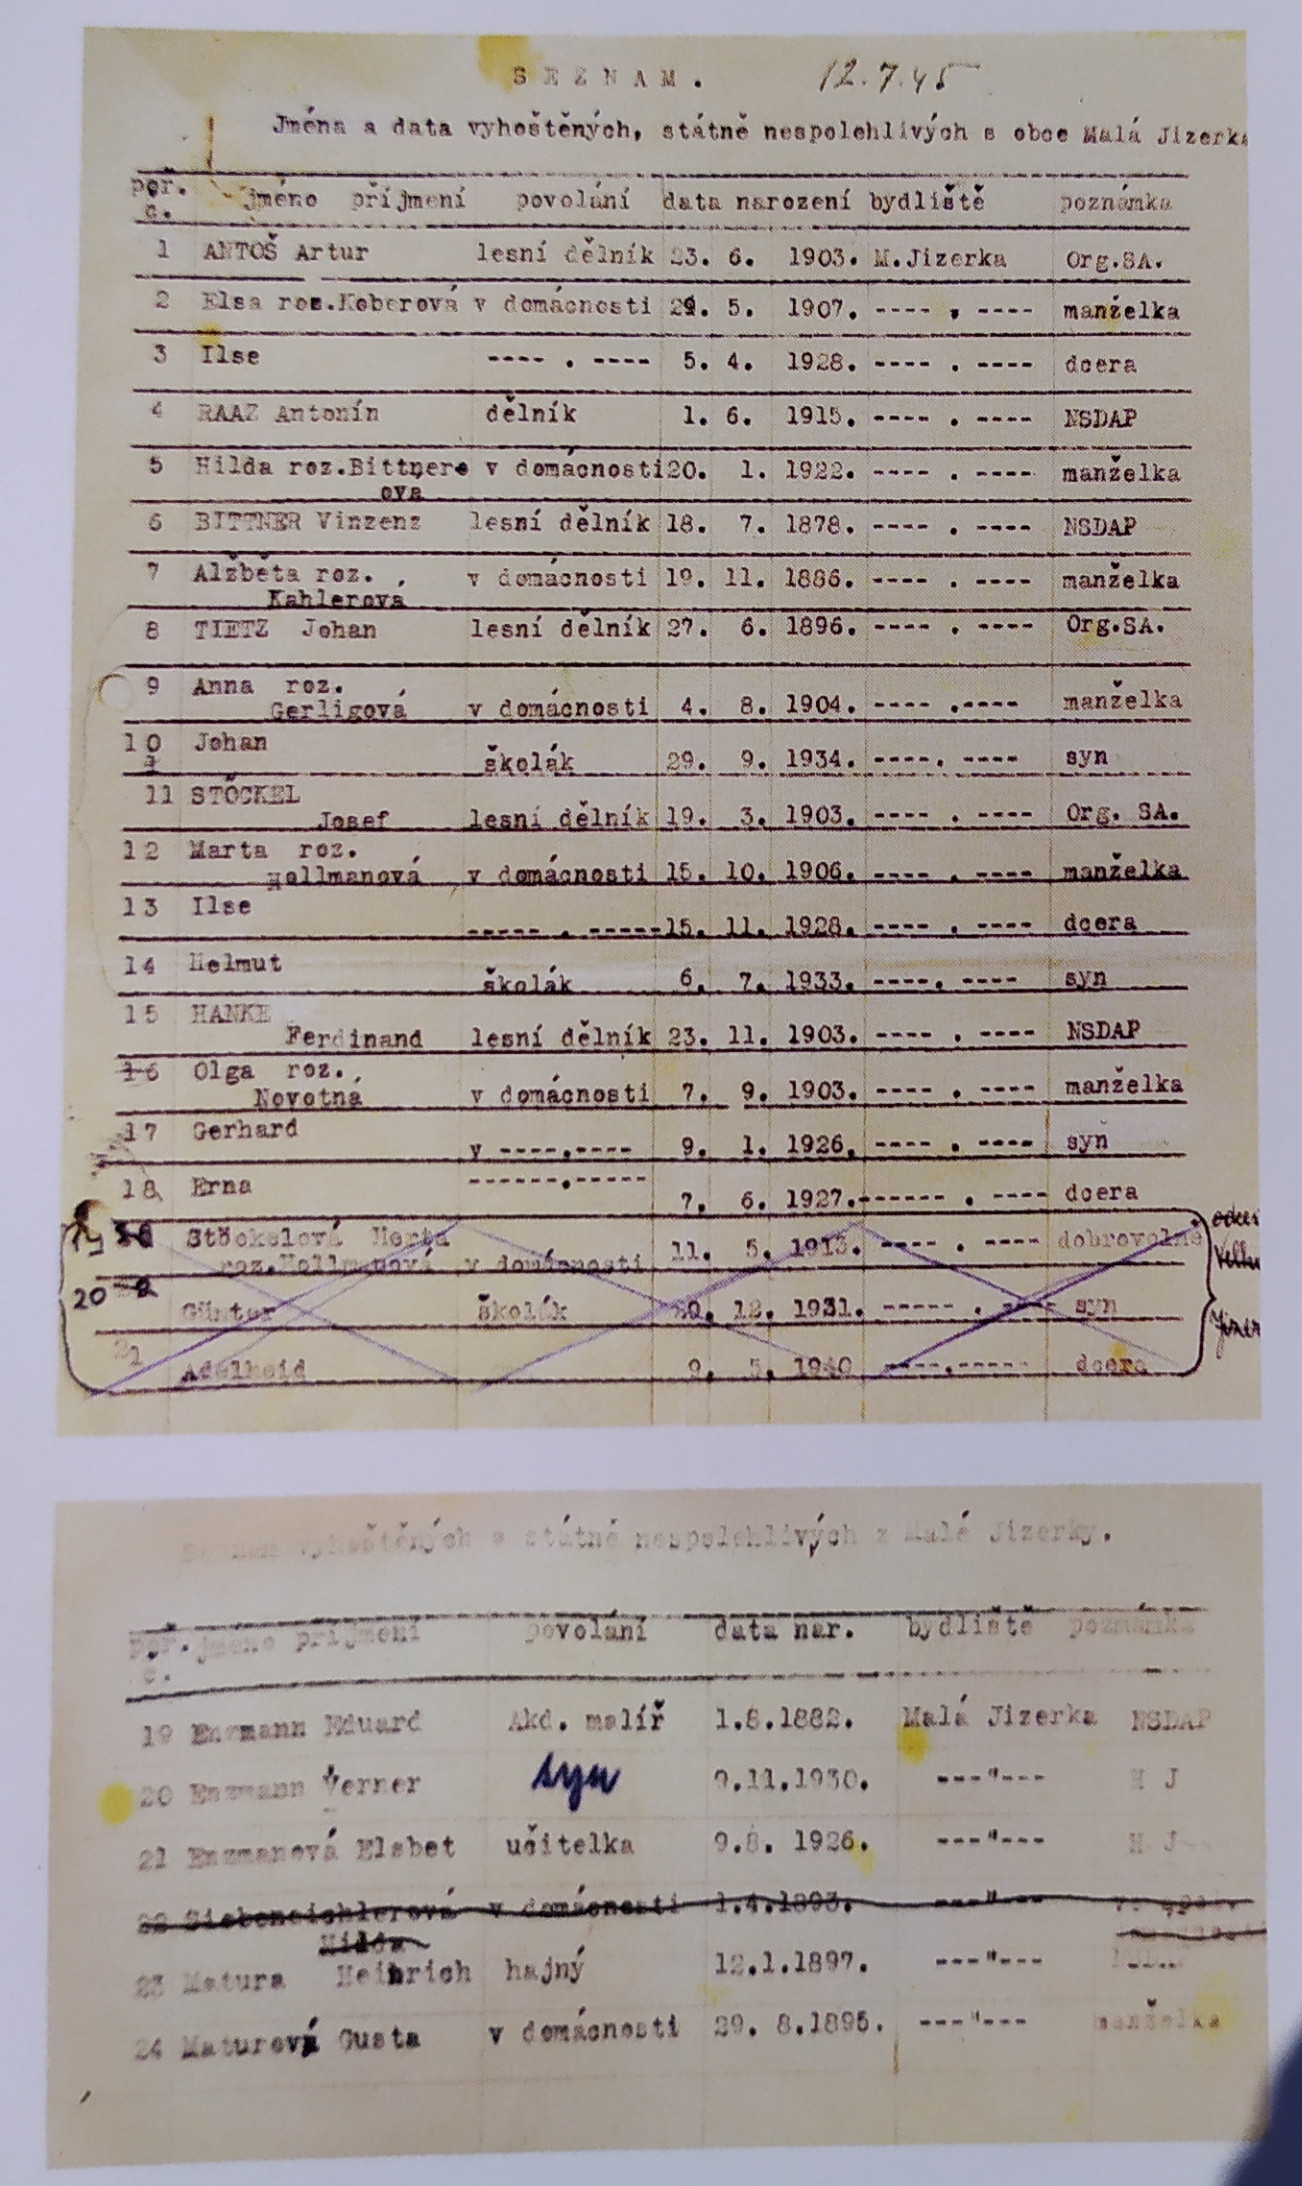 SEZNAM. 12.7.45
Jména a data vyhoštěných, státně nespolehlivých s obce Malá Jizerka
poř. č. jméno příjmení povolání data narození bydliště poznámka
1 ANTOŠ Artur lesní dělník 23. 6. 1903. M.Jizerka Org.SA.
2 Elsa roz.Koberová v domácnosti 29. 5. 1907. ---- . ---- manželka
3 Ilse ---- . ---- 5. 4. 1928. ---- . ---- dcera
4 RAAZ Antonín dělník 1. 6. 1915. ---- . ---- NSDAP
5 Hilda roz.Bittnere v domácnosti 20. 1. 1922. ---- . ---- manželka
ova
6 BITTNER Vinzenz lesní dělník 18. 7. 1878. ---- . ---- NSDAP
7 Alžběta roz. v domácnosti 19. 11. 1886. ---- . ---- manželka
Kahlerová
8 TIETZ Johan lesní dělník 27. 6. 1896. ---- . ---- Org.SA.
9 Anna roz.
Gerligová v domácnosti 4. 8. 1904. ---- .---- manželka
10 Johan
školák 29. 9. 1934. ----. ---- syn
11 STÖCKEL
Josef lesní dělník 19. 3. 1903. ---- . ---- Org. SA.
12 Marta roz.
Hollmanová v domácnosti 15. 10. 1906. ---- . ---- manželka
13 Ilse
----- . ----- 15. 11. 1928. ---- . ---- dcera
14 Helmut
školák 6. 7. 1933. ----. ---- syn
15 HANKE
Ferdinand lesní dělník 23. 11. 1903. ---- . ---- NSDAP
16 Olga roz.
Novotná v domácnosti 7. 9. 1903. ---- . ---- manželka
17 Gerhard
v ----.---- 9. 1. 1926. ---- . ---- syn
18 Erna ------.-----
7. 6. 1927. ------ . ---- dcera
19 Stöckelová Herta 11. 5. 1913. ---- . ---- dobrovolně
roz.Hollmanová v domácnosti
20 Günter školák 12. 1931. ----- . ---- syn
21 Adelheid 9. 5. 1940 ----.----- dcera
Seznam vyhoštěných a státně nespolehlivých z Malé Jizerky.
poř. č. jméno příjmení povolání data nar. bydliště poznámka
19 Enzmann Eduard Akd. malíř 1.8.1882. Malá Jizerka NSDAP
20 Enzmann Verner syn 9.11.1930. ---"--- H J
21 Enzmanová Elsbet učitelka 9.8. 1926. ---"--- H J
22 Siebeneichlerová v domácnosti 1.4.1893. ---"---
Hilda
23 Matura Heinrich hajný 12.1.1897. ---"---
24 Maturová Gusta v domácnosti 29. 8.1895. ---"--- manželka